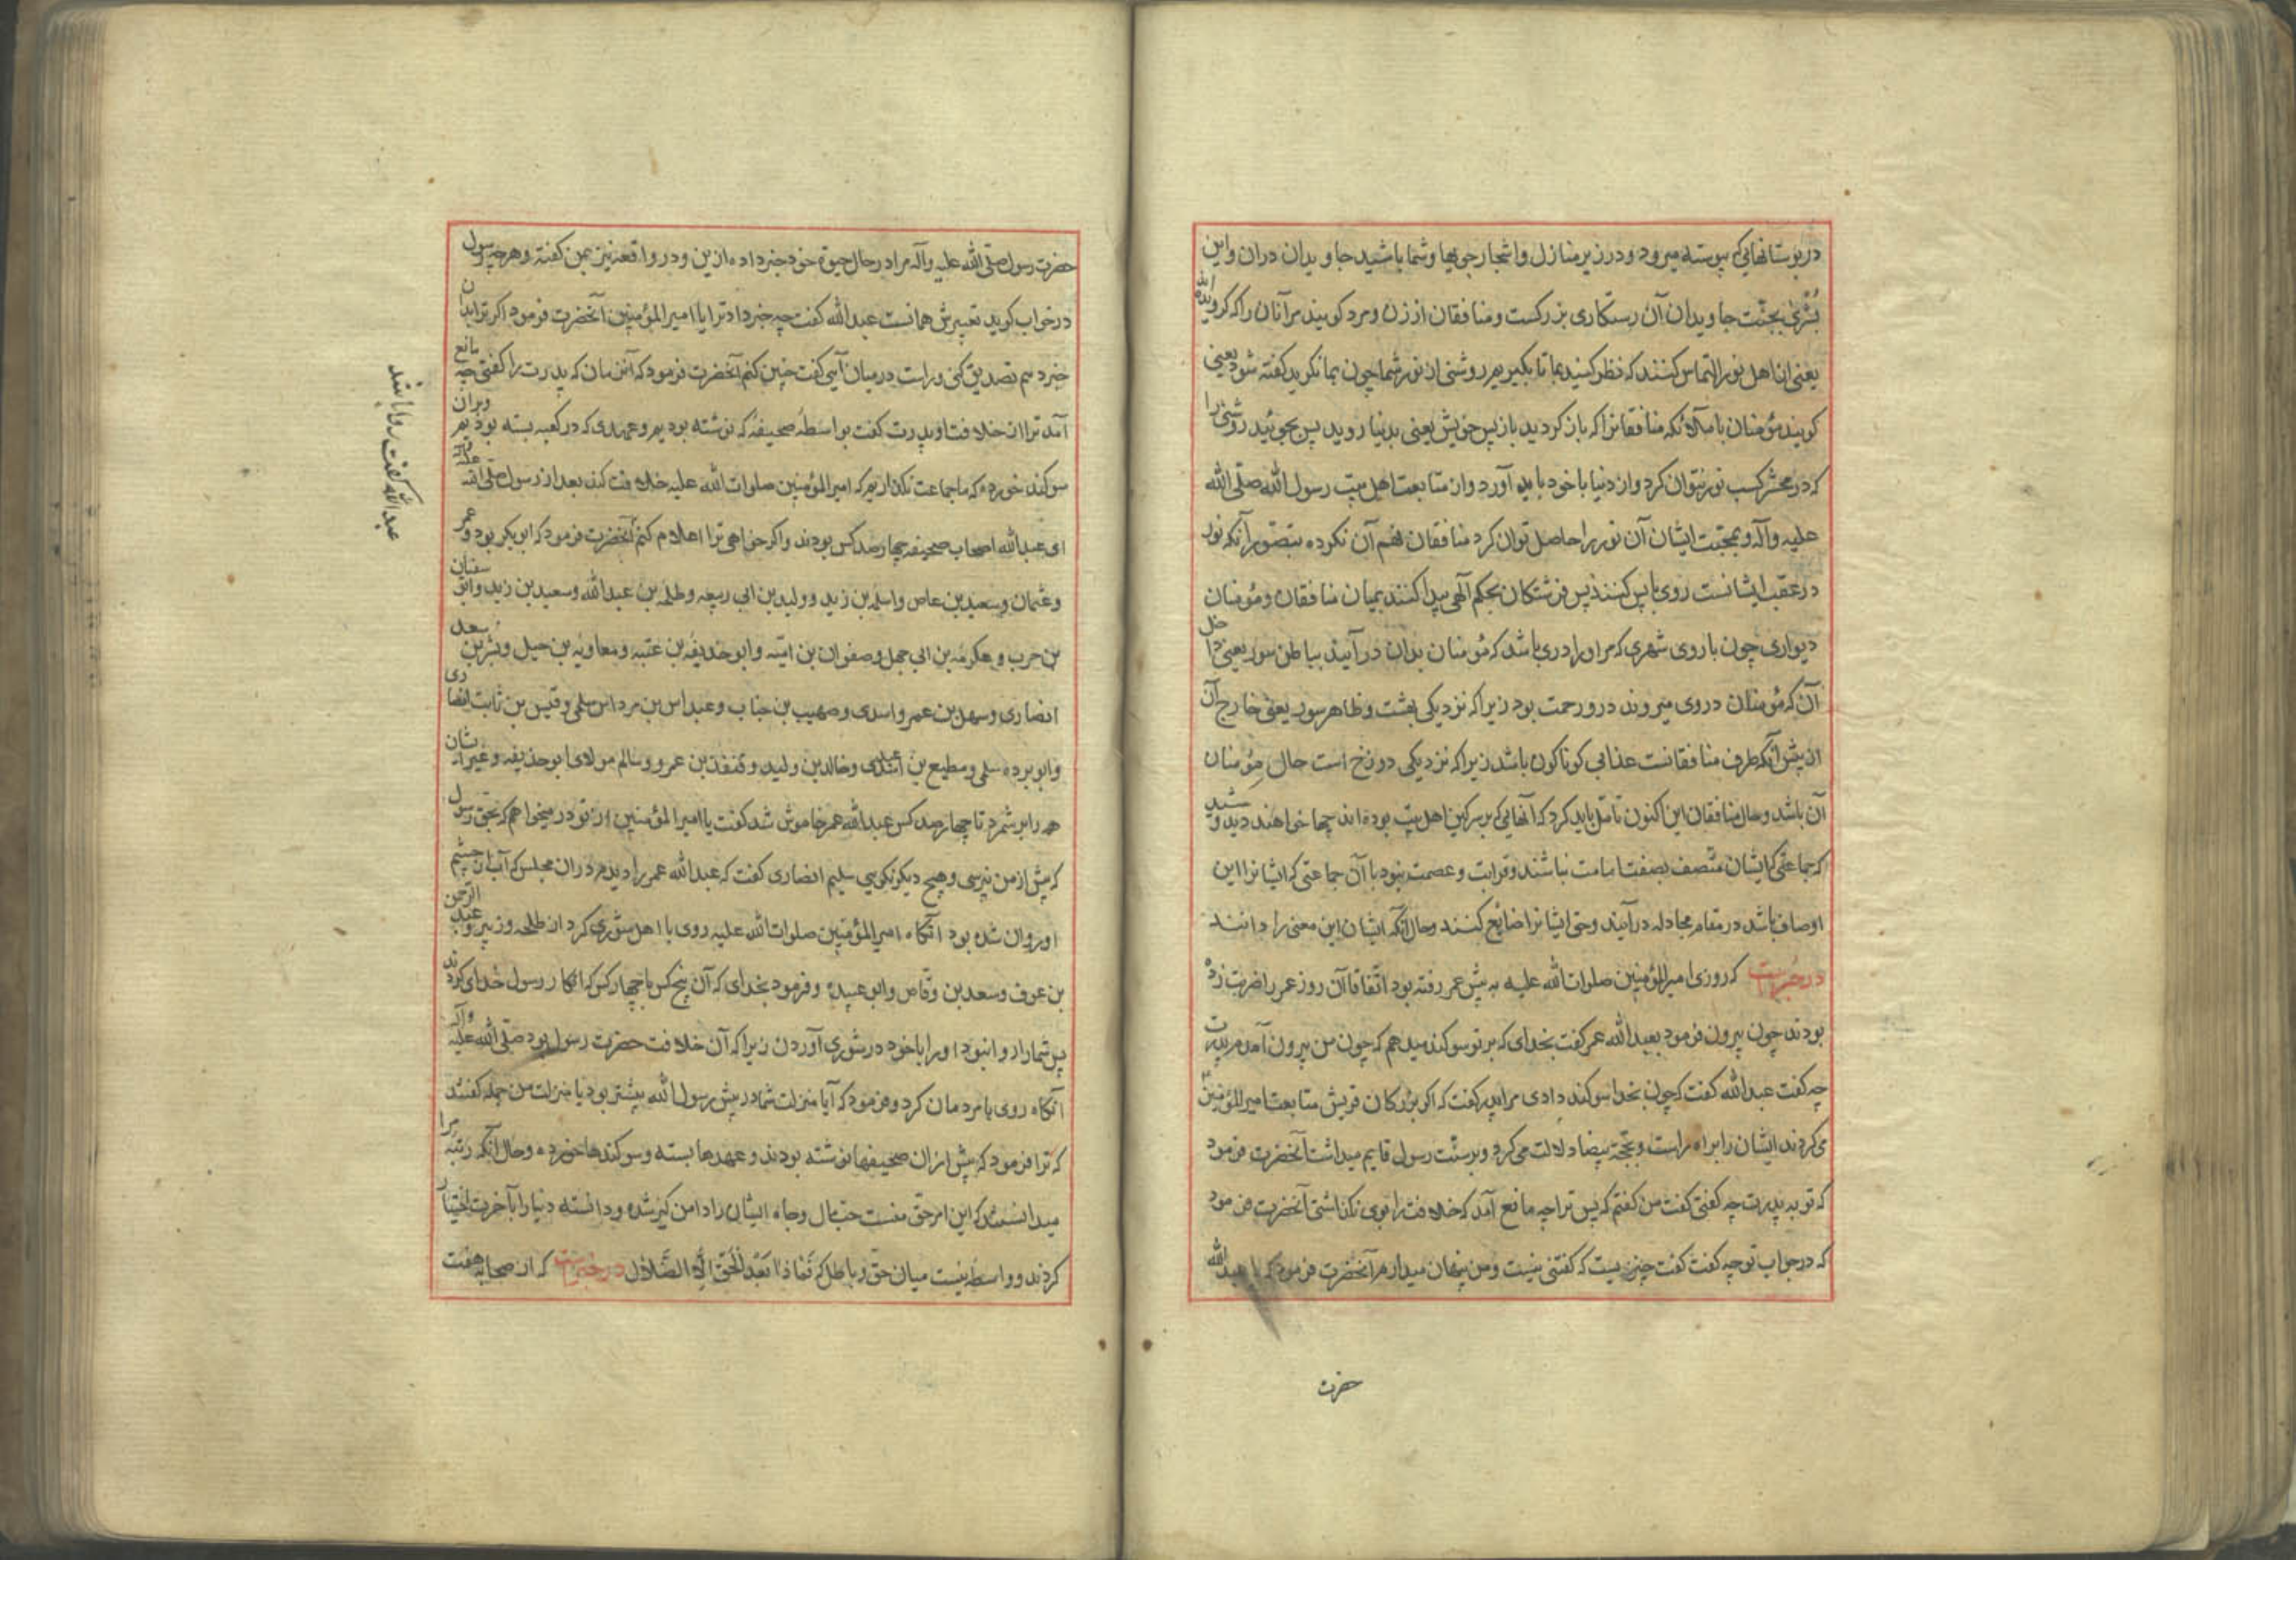 دربوستانهایی که پیوسته میرود در زیر منازل و اشجار جویها و شما باشید جاویدان دران و این
بُشری بجنّت جاویدان آن رستکاری بزرکست و منافقان از زن و مرد کویند مر آنان را که کرویده اند
یعنی از اهل نور التماس کنند که نظر کنید بما تا بکیریم روشنی از نور شما چون بما نکرید کفته شود یعنی
کویند مؤمنان یا ملائکه منافقانرا که باز کردید بازپس خویش یعنی بدنیا روید پس بجوئید روشنی را
که در محشر کسب نور نتوان کرد و از دنیا با خود باید آورد و از متابعت اهل بیت رسول الله صلّی الله
علیه وآله و بمحبّت ایشان آن نور را حاصل توان کرد منافقان فهم آن نکرده بتصوّر آنکه نور
در عقب ایشانست روی باپس کنند پس فرشتکان بحکم الهی پیدا کنند میان منافقان و مؤمنان
دیواری چون باروی شهری که مر او را دری باشد که مؤمنان بدان در آیند بباطن سور یعنی داخل
آن که مؤمنان در وی میروند درو رحمت بود زیرا که نزدیکی بهشت و ظاهر سور یعنی خارج آن
از پیش آنکه طرف منافقانست عذابی کوناکون باشد زیرا که نزدیکی دوزخ است حال مؤمنان
آن باشد و حال منافقان این اکنون تأمّل باید کرد که آنهایی که بر سر کین اهل بیت بوده اند چها خواهند دید و شنید
که جماعتی که ایشان متّصف بصفت امامت نباشند و قرابت و عصمت نبود با آن جماعتی که ایشانرا این
اوصاف باشد در مقام مجادله در آیند و حق ایشانرا ضایع کنند و حال آنکه ایشان این معنی را دانند
در خبرست که روزی امیر المؤمنین صلوات الله علیه به پیش عمر رفته بود اتّفاقا آن روز عمر را ضربت زده
بودند چون بیرون فرمود بعبد الله عمر کفت بخدای که بر تو سوکند میدهم که چون من بیرون آمدم پدرت
چه کفت عبد الله کفت که چون بخدا سوکند دادی مرا پدر کفت که اکر بزرکان قریش متابعت امیر المؤمنین
می کردند ایشان را براه راست و بحجّة بیضا دلالت می کرد و برسنّت رسول قایم میداشت آنحضرت فرمود
که تو به پدرت چه کفتی کفت من کفتم که پس ترا چه مانع آمد که خلافت را بوی نکذاشتی آنحضرت فرمود
که در جواب تو چه کفت کفت چیزیست که کفتنی نیست و من پنهان میدارم آنحضرت فرمود که یا عبد الله
حضرت
حضرت رسول صلّی الله علیه وآله مرا در حال حیوة خود خبر داده ازین و در واقعه نیز بمن کفته و هرچه رسول
در خواب کوید تعبیرش همانست عبد الله کفت چه خبر داد ترا یا امیر المؤمنین آنحضرت فرمود اکر ترا بدان
خبر دهم تصدیق کنی و راست در میان آیی کفت چنین کنم آنحضرت فرمود که آن زمان که پدرت را کفتی چه مانع
آمد ترا از خلافت او پدرت کفت بواسطهٔ صحیفهٔ که نوشته بودیم و عهدی که در کعبه بسته بودیم و بران
سوکند خورده که ما جماعت نکذاریم که امیر المؤمنین صلوات الله علیه خلافت کند بعد از رسول صلّی الله علیه وآله
ای عبد الله اصحاب صحیفه چهارصد کس بودند و اکر خواهی ترا اعلام کنم آنحضرت فرمود که ابوبکر بود و عمر
و عثمان و سعید بن عاص و اسلم بن زید و ولید بن ابی ربیعه و طلحه بن عبد الله و سعید بن زید و ابو سفیان
بن حرب و عکرمه بن ابی جهل و صفوان بن امیّه و ابوحذیفه بن عتبه و معاویه بن جبل و بشر بن سعد
انصاری و سهل بن عمرو اسدی و صهیب بن جناب و عباس بن مرداس سلمی و قیس بن ثابت انصاری
و ابو برده سلمی و مطیع بن اسد عبدی و خالد بن ولید و قنفذ بن عمرو و سالم مولای ابوحذیفه و غیر ایشان
همه را بر شمرد تا چهارصد کس عبد الله عمر خاموش شد کفت یا امیر المؤمنین از تو در میخواهم که بحق رسول
که پیش از من نپرسی و هیچ دیکر نکویی سلیم انصاری کفت که عبد الله عمر را دیدم دران مجلس که آب از چشم
او روان شده بود آنکاه امیر المؤمنین صلوات الله علیه روی با اهل شوری کرد از طلحه و زبیر و عبد الرّحمن
بن عوف و سعد بن وقّاص و ابو عبیده و فرمود بخدای که آن پنج کس با چهار کس که انکار رسول خدای کردند
پس شما را روا نبود او را با خود در شوری آوردن زیرا که آن خلافت حضرت رسول بود صلّی الله علیه وآله
آنکاه روی با مردمان کرد و فرمود که آیا منزلت شما در پیش رسول الله بیشتر بود یا منزلت من جمله کفتند
که ترا فرمود که پیش ازان صحیفها نوشته بودند و عهدها بسته و سوکندها خورده و حال آنکه رتبهٔ مرا
میدانستند که این امر حق منست حبّ مال و جاه ایشان را دامن کیر شده و دانسته دنیا را بآخرت اختیار
کردند و واسطه نیست میان حق و باطل که فَمَاذَا بَعْدَ الْحَقِّ اِلَّا الضَّلَال در خبرست که از صحابه هفت
عبد الله کفت روا باشد